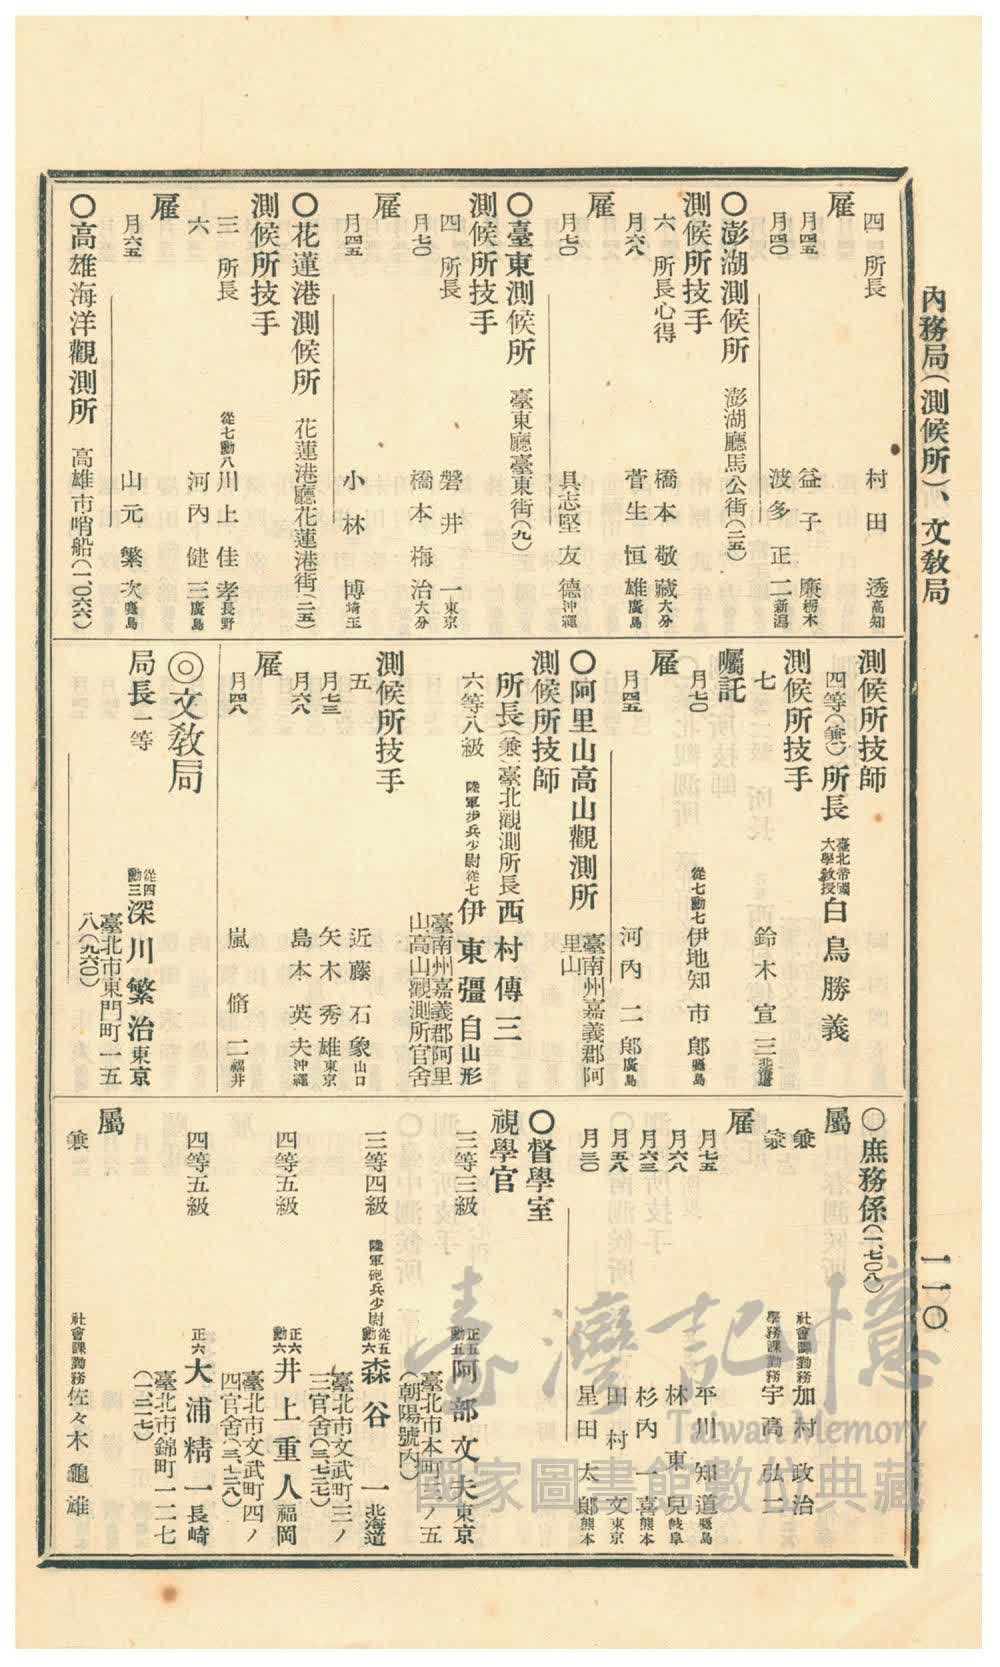 內務局(測候所)、文敎局
一一〇
四 所長 村田 透 高知
雇
月四五 益子 廉 栃木
月四〇 波多 正二 新潟
○澎湖測候所 澎湖廳馬公街(二五)
測候所技手
六 所長心得 橋本 敬藏 大分
月六八 菅生 恒雄 廣島
雇
月七〇 具志堅 友德 沖繩
○臺東測候所 臺東廳臺東街(九)
測候所技手
四 所長 磐井 一 東京
月七〇 橋本 梅治 大分
雇
月四五 小林 博 埼玉
○花蓮港測候所 花蓮港廳花蓮港街(二五)
測候所技手
三 所長 從七勳八 川上 佳孝 長野
六 河內 健三 廣島
雇
月六五 山元 繁次 鹿兒島
○高雄海洋觀測所 高雄市哨船(一〇六六)
測候所技師
四等(兼)所長 臺北帝國大學敎授 白鳥勝義
測候所技手
七 鈴木 宣三 北海道
囑託
月七〇 從七勳七 伊地知 市郎 鹿兒島
雇
月四五 河內 二郎 廣島
○阿里山高山觀測所 臺南州嘉義郡阿里山
測候所技師
所長(兼)臺北觀測所長 西村傳三
六等八級 陸軍步兵少尉從七 伊東彊自 山形
臺南州嘉義郡阿里山高山觀測所官舍
測候所技手
五 近藤 石象 山口
月七三 矢木 秀雄 東京
月六八 島本 英夫 沖繩
雇
月四八 嵐 脩二 福井
◎文敎局
局長 一等 從四勳三 深川繁治 東京
臺北市東門町一五八(九六〇)
○庶務係(一、七〇八)
屬
兼 社會課勤務 加村 政治
兼 學務課勤務 宇高 弘二
雇
月七五 平川 知道 鹿兒島
月六八 林 東兒 岐阜
月六三 杉內 一喜 熊本
月五八 田村 文 東京
月三〇 星田 太郎 熊本
○督學室
視學官
三等三級 正五勳五 阿部文夫 東京
臺北市本町三ノ五(朝陽號內)
三等四級 陸軍砲兵少尉 從五勳六 森谷 一 北海道
臺北市文武町三ノ三官舍(三、七二七)
四等五級 正六勳六 井上重人 福岡
臺北市文武町四ノ四官舍(三、七二八)
四等五級 正六 大浦精一 長崎
臺北市錦町一二七(二二七)
屬
兼 社會課勤務 佐々木 龜雄
臺灣記憶
Taiwan Memory
國家圖書館數位典藏